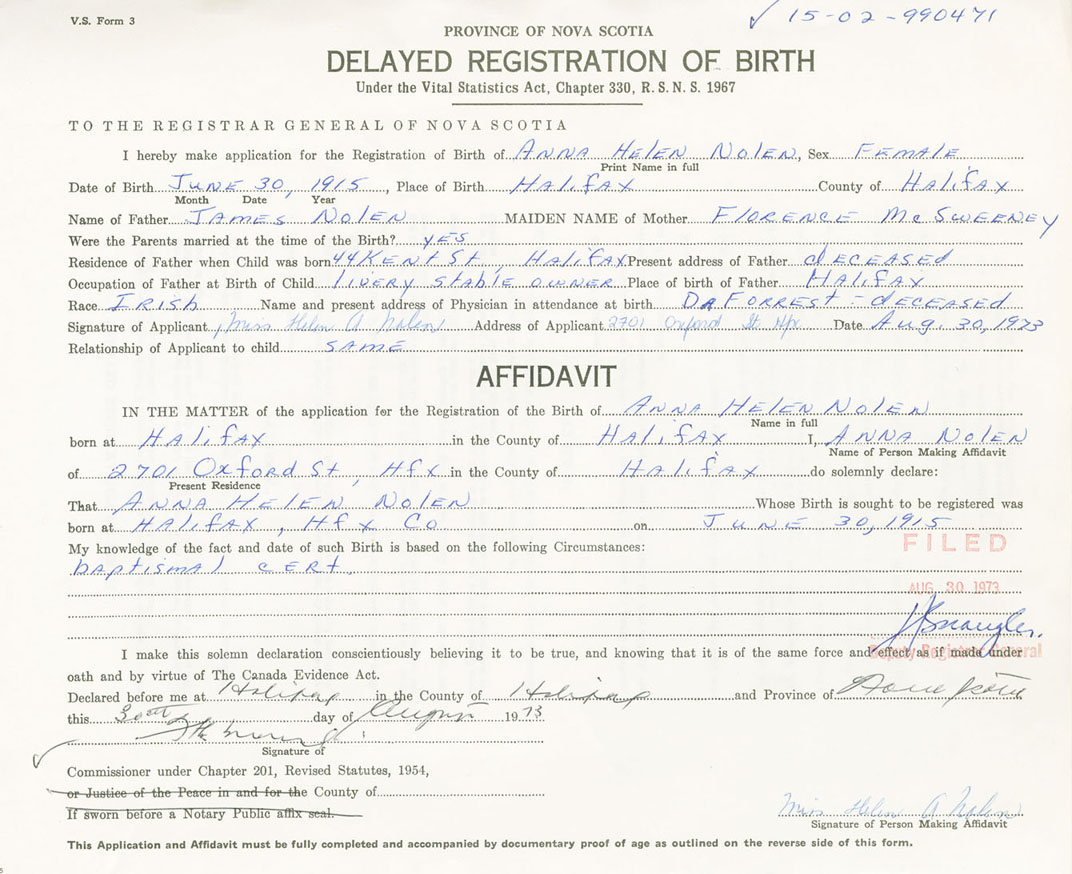 V.S. Form 3
✓ 15-02-990471
PROVINCE OF NOVA SCOTIA
DELAYED REGISTRATION OF BIRTH
Under the Vital Statistics Act, Chapter 330, R.S.N.S. 1967
TO THE REGISTRAR GENERAL OF NOVA SCOTIA
I hereby make application for the Registration of Birth of ANNA HELEN NOLEN, Sex FEMALE
Print Name in full
Date of Birth JUNE 30, 1915, Place of Birth HALIFAX County of HALIFAX
Month Date Year
Name of Father JAMES NOLEN MAIDEN NAME of Mother FLORENCE McSWEENEY
Were the Parents married at the time of the Birth? YES
Residence of Father when Child was born 44 KENT St, HALIFAX Present address of Father dECEASED
Occupation of Father at Birth of Child livery stable owner Place of birth of Father HALIFAX
Race IRISH Name and present address of Physician in attendance at birth DR FORREST - dECEASED
Signature of Applicant Miss Helen A Nolen Address of Applicant 2701 Oxford St Hfx Date Aug. 30, 1973
Relationship of Applicant to child SAME
AFFIDAVIT
IN THE MATTER of the application for the Registration of the Birth of ANNA HELEN NOLEN
Name in full
born at HALIFAX in the County of HALIFAX I, ANNA NOLEN
Name of Person Making Affidavit
of 2701 Oxford St, Hfx in the County of HALIFAX do solemnly declare:
Present Residence
That ANNA HELEN NOLEN Whose Birth is sought to be registered was
born at HALIFAX, Hfx Co on JUNE 30, 1915
My knowledge of the fact and date of such Birth is based on the following Circumstances:
baptismal CERT.
FILED
AUG 30 1973
Deputy Registrar General
I make this solemn declaration conscientiously believing it to be true, and knowing that it is of the same force and effect as if made under
oath and by virtue of The Canada Evidence Act.
Declared before me at Halifax in the County of Halifax and Province of Nova Scotia
this 30th day of August 1973
Signature of
Commissioner under Chapter 201, Revised Statutes, 1954,
or Justice of the Peace in and for the County of
If sworn before a Notary Public affix seal.
Miss Helen A Nolen
Signature of Person Making Affidavit
This Application and Affidavit must be fully completed and accompanied by documentary proof of age as outlined on the reverse side of this form.